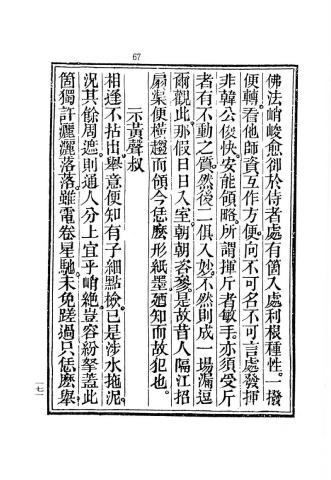 67
佛法峭峻愈卻於侍者處有箇入處利根種性一撥
便轉看他師資互作方便向不可名不可言處發揮
非韓公俊快安能領略所謂揮斤者敏手亦須受斤
者有不動之質然後二俱入妙不然則成一場漏逗
爾觀此那假日日入室朝朝咨參是故昔人隔江招
扇渠便橫趨而領今恁麼形紙墨廼知而故犯也
示黃聲叔
相逢不拈出舉意便知有子細點檢已是涉水拖泥
況其餘周遮則通人分上宜乎峭絕豈容紛拏蓋此
箇獨許灑灑落落雖電卷星馳未免蹉過只恁麼舉
一七